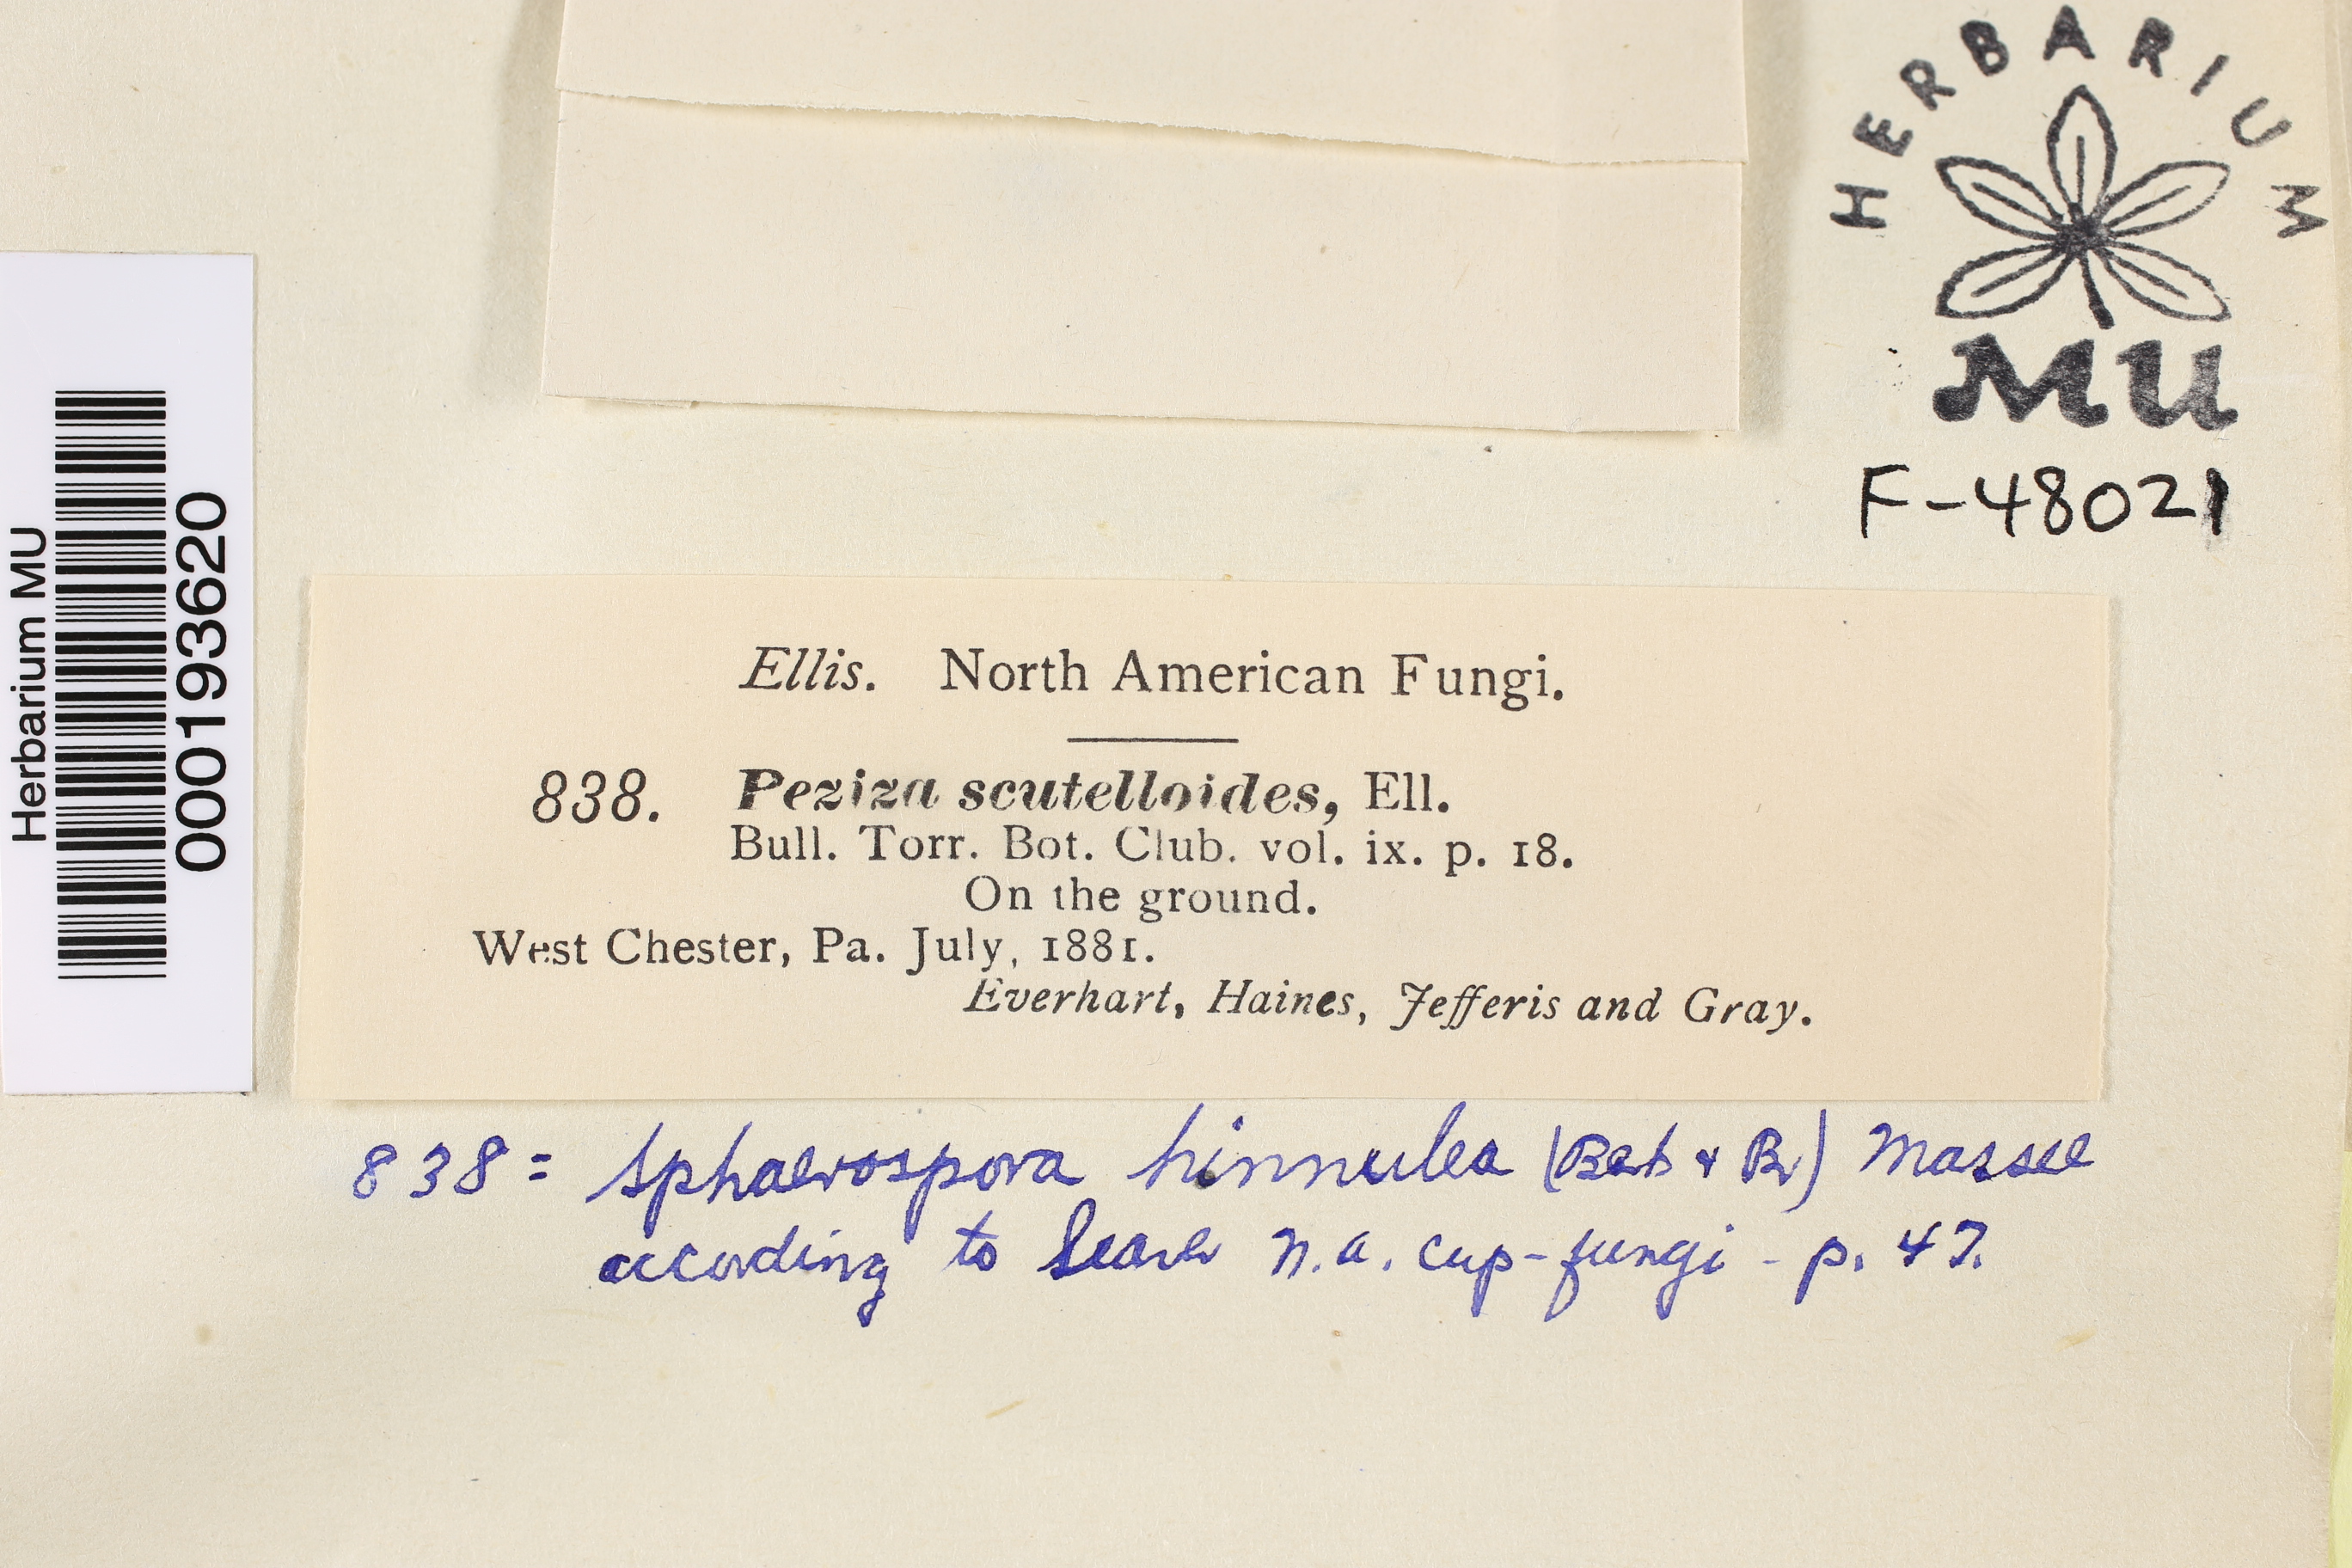 HERBARIUM
MU
F-48021
Herbarium MU
000193620
Ellis. North American Fungi.
838. Peziza scutelloides, Ell.
Bull. Torr. Bot. Club. vol. ix. p. 18.
On the ground.
West Chester, Pa. July, 1881.
Everhart, Haines, Jefferis and Gray.
838 = Sphaerospora hinnulea (Berk & Br) Massee
according to Seaver N.A. cup-fungi - p. 47.